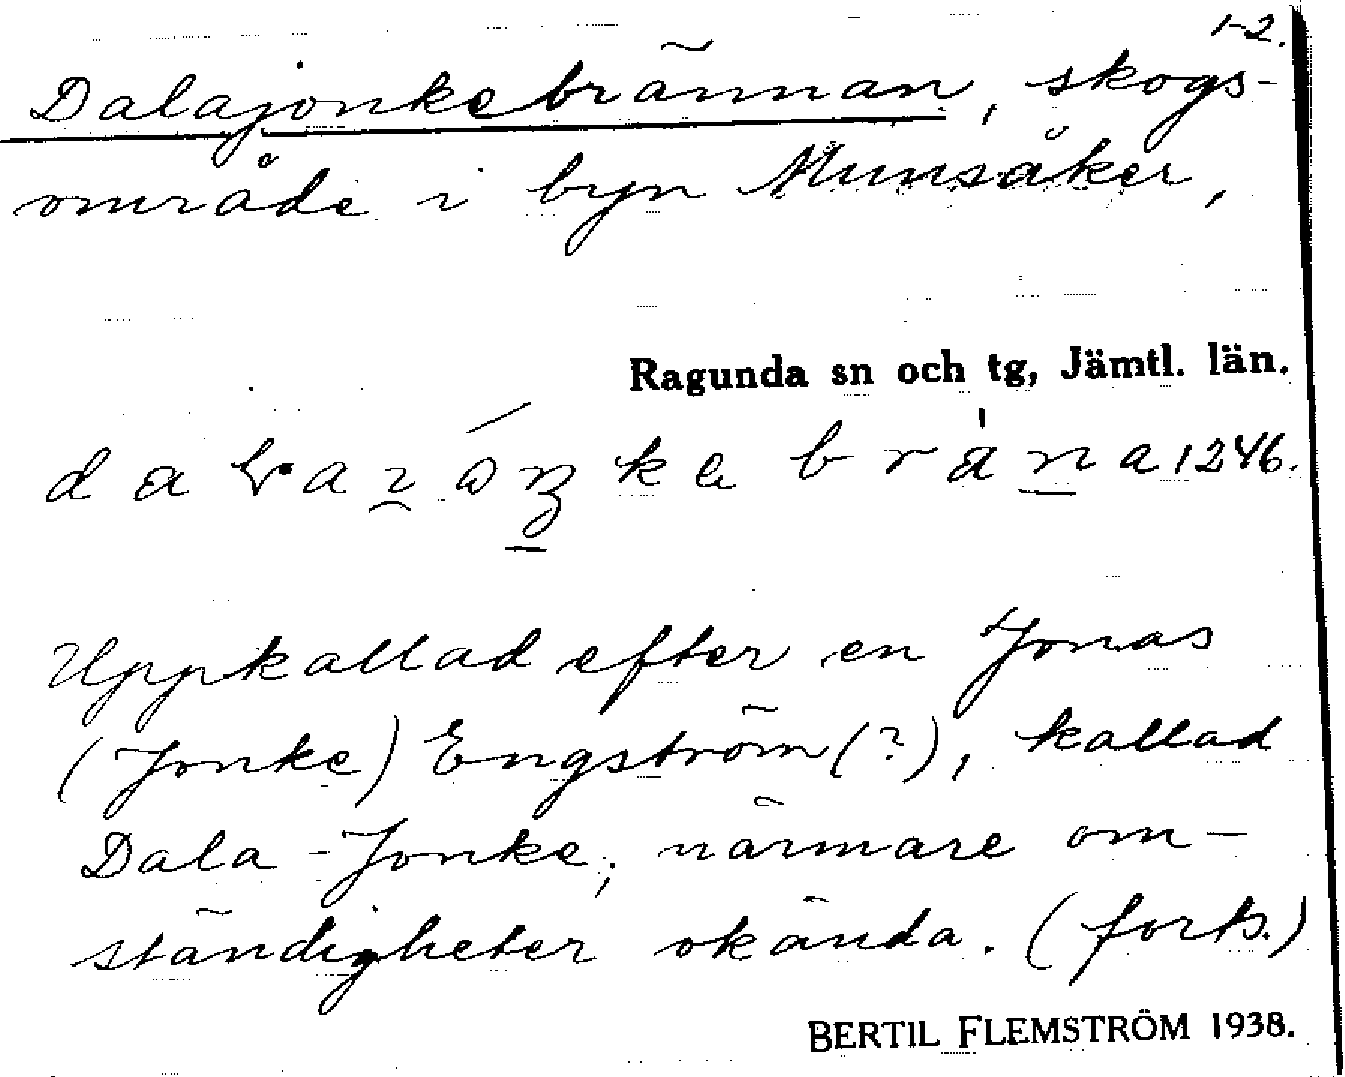 1-2.
Dalajonkebrännan, skogs-
område i byn Munsåker,
Ragunda sn och tg, Jämtl. län.
1246.
Uppkallad efter en Jonas
(Jonke) Engström (?), kallad
Dala-Jonke; närmare om-
ständigheter okända. (forts.)
BERTIL FLEMSTRÖM 1938.